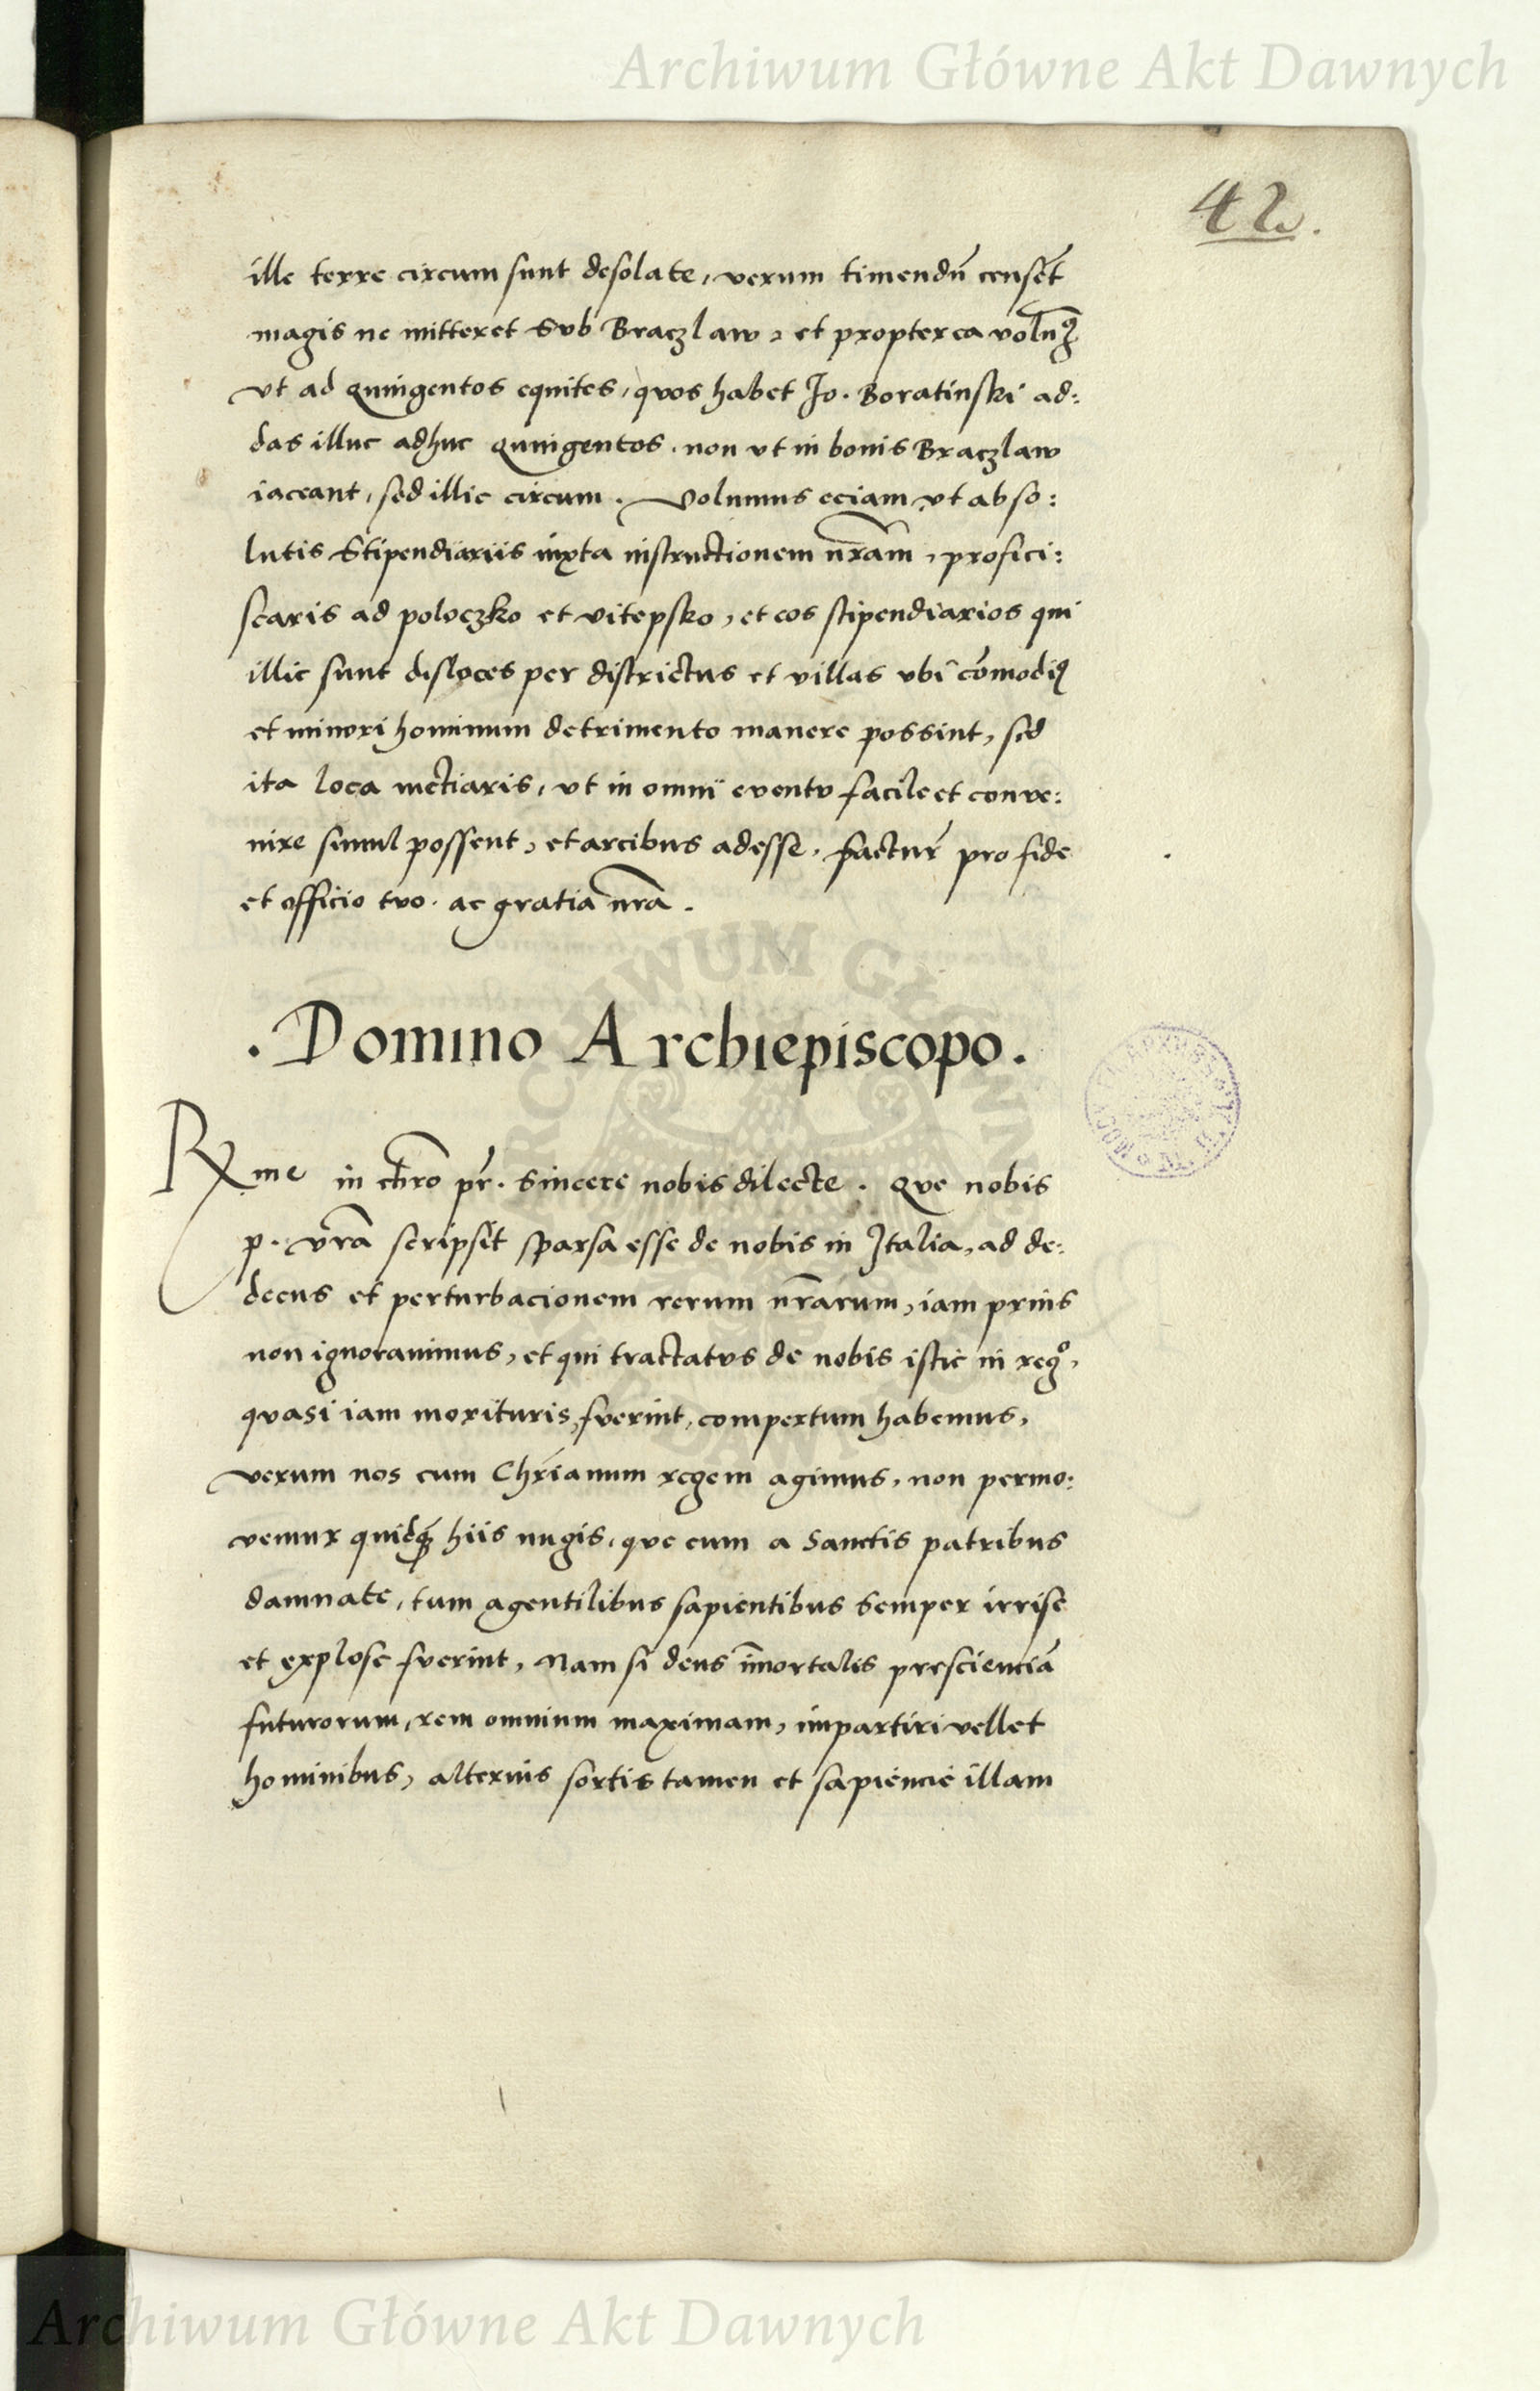 Archiwum Główne Akt Dawnych
42.
ille terre circum sunt desolate, verum timendũ censẽt
magis ne mitteret Sub Braczlaw, et propterea volumꝰ
vt ad quingentos equites, quos habet Jo. Boratinski ad:
das illuc adhuc quingentos. non vt in bonis Braczlaw
iaceant, sed illic circum. Volumus eciam vt abso:
lutis Stipendiariis iuxta instructionem nr̃am, profici:
scaris ad poloczko et vitepsko, et eos stipendiarios qui
illic sunt disloces per districtus et villas vbi cõmodiꝰ
et minori hominum detrimento manere possint, sed
ita loca metiaris, vt in omni eventu facile et conve:
nire simul possent, et arcibus adesse. facturꝰ pro fide
et officio tuo. ac gratia nr̃a.
. Domino Archiepiscopo.
Rx̃me in chr̃o pr̃. sincere nobis dilecte. Que nobis
p. vr̃a scripsit sparsa esse de nobis in Italia, ad de:
decus et perturbacionem rerum nr̃arum, iam prius
non ignoravimus, et qui tractatus de nobis istic in regº,
quasi iam morituris, fuerint, compertum habemus,
verum nos cum Chr̃ianum regem agimus, non permo:
vemur quidq̃ hiis nugis, que cum a Sanctis patribus
damnate, tum a gentilibus sapientibus semper irrise
et explose fuerint, Nam si deus im̃ortalis prescienciã
futurorum, rem omnium maximam, impartiri vellet
hominibus, alterius sortis tamen et sapiencie illam
Archiwum Główne Akt Dawnych